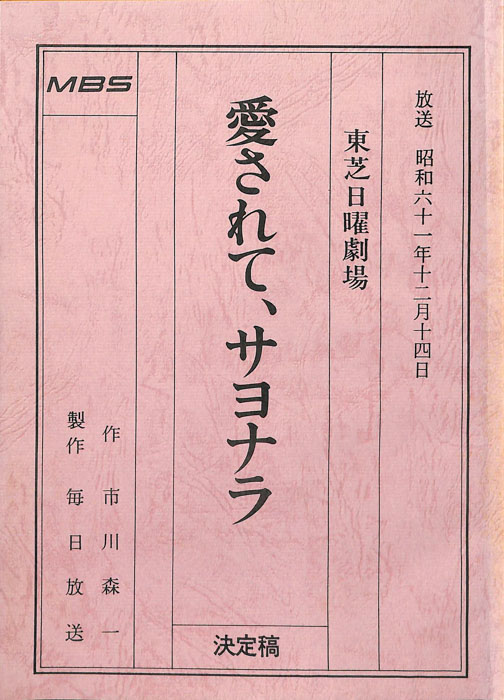 放送　昭和六十一年十二月十四日
東芝日曜劇場
愛されて、サヨナラ
決定稿
作　市川森一
製作　毎日放送
MBS